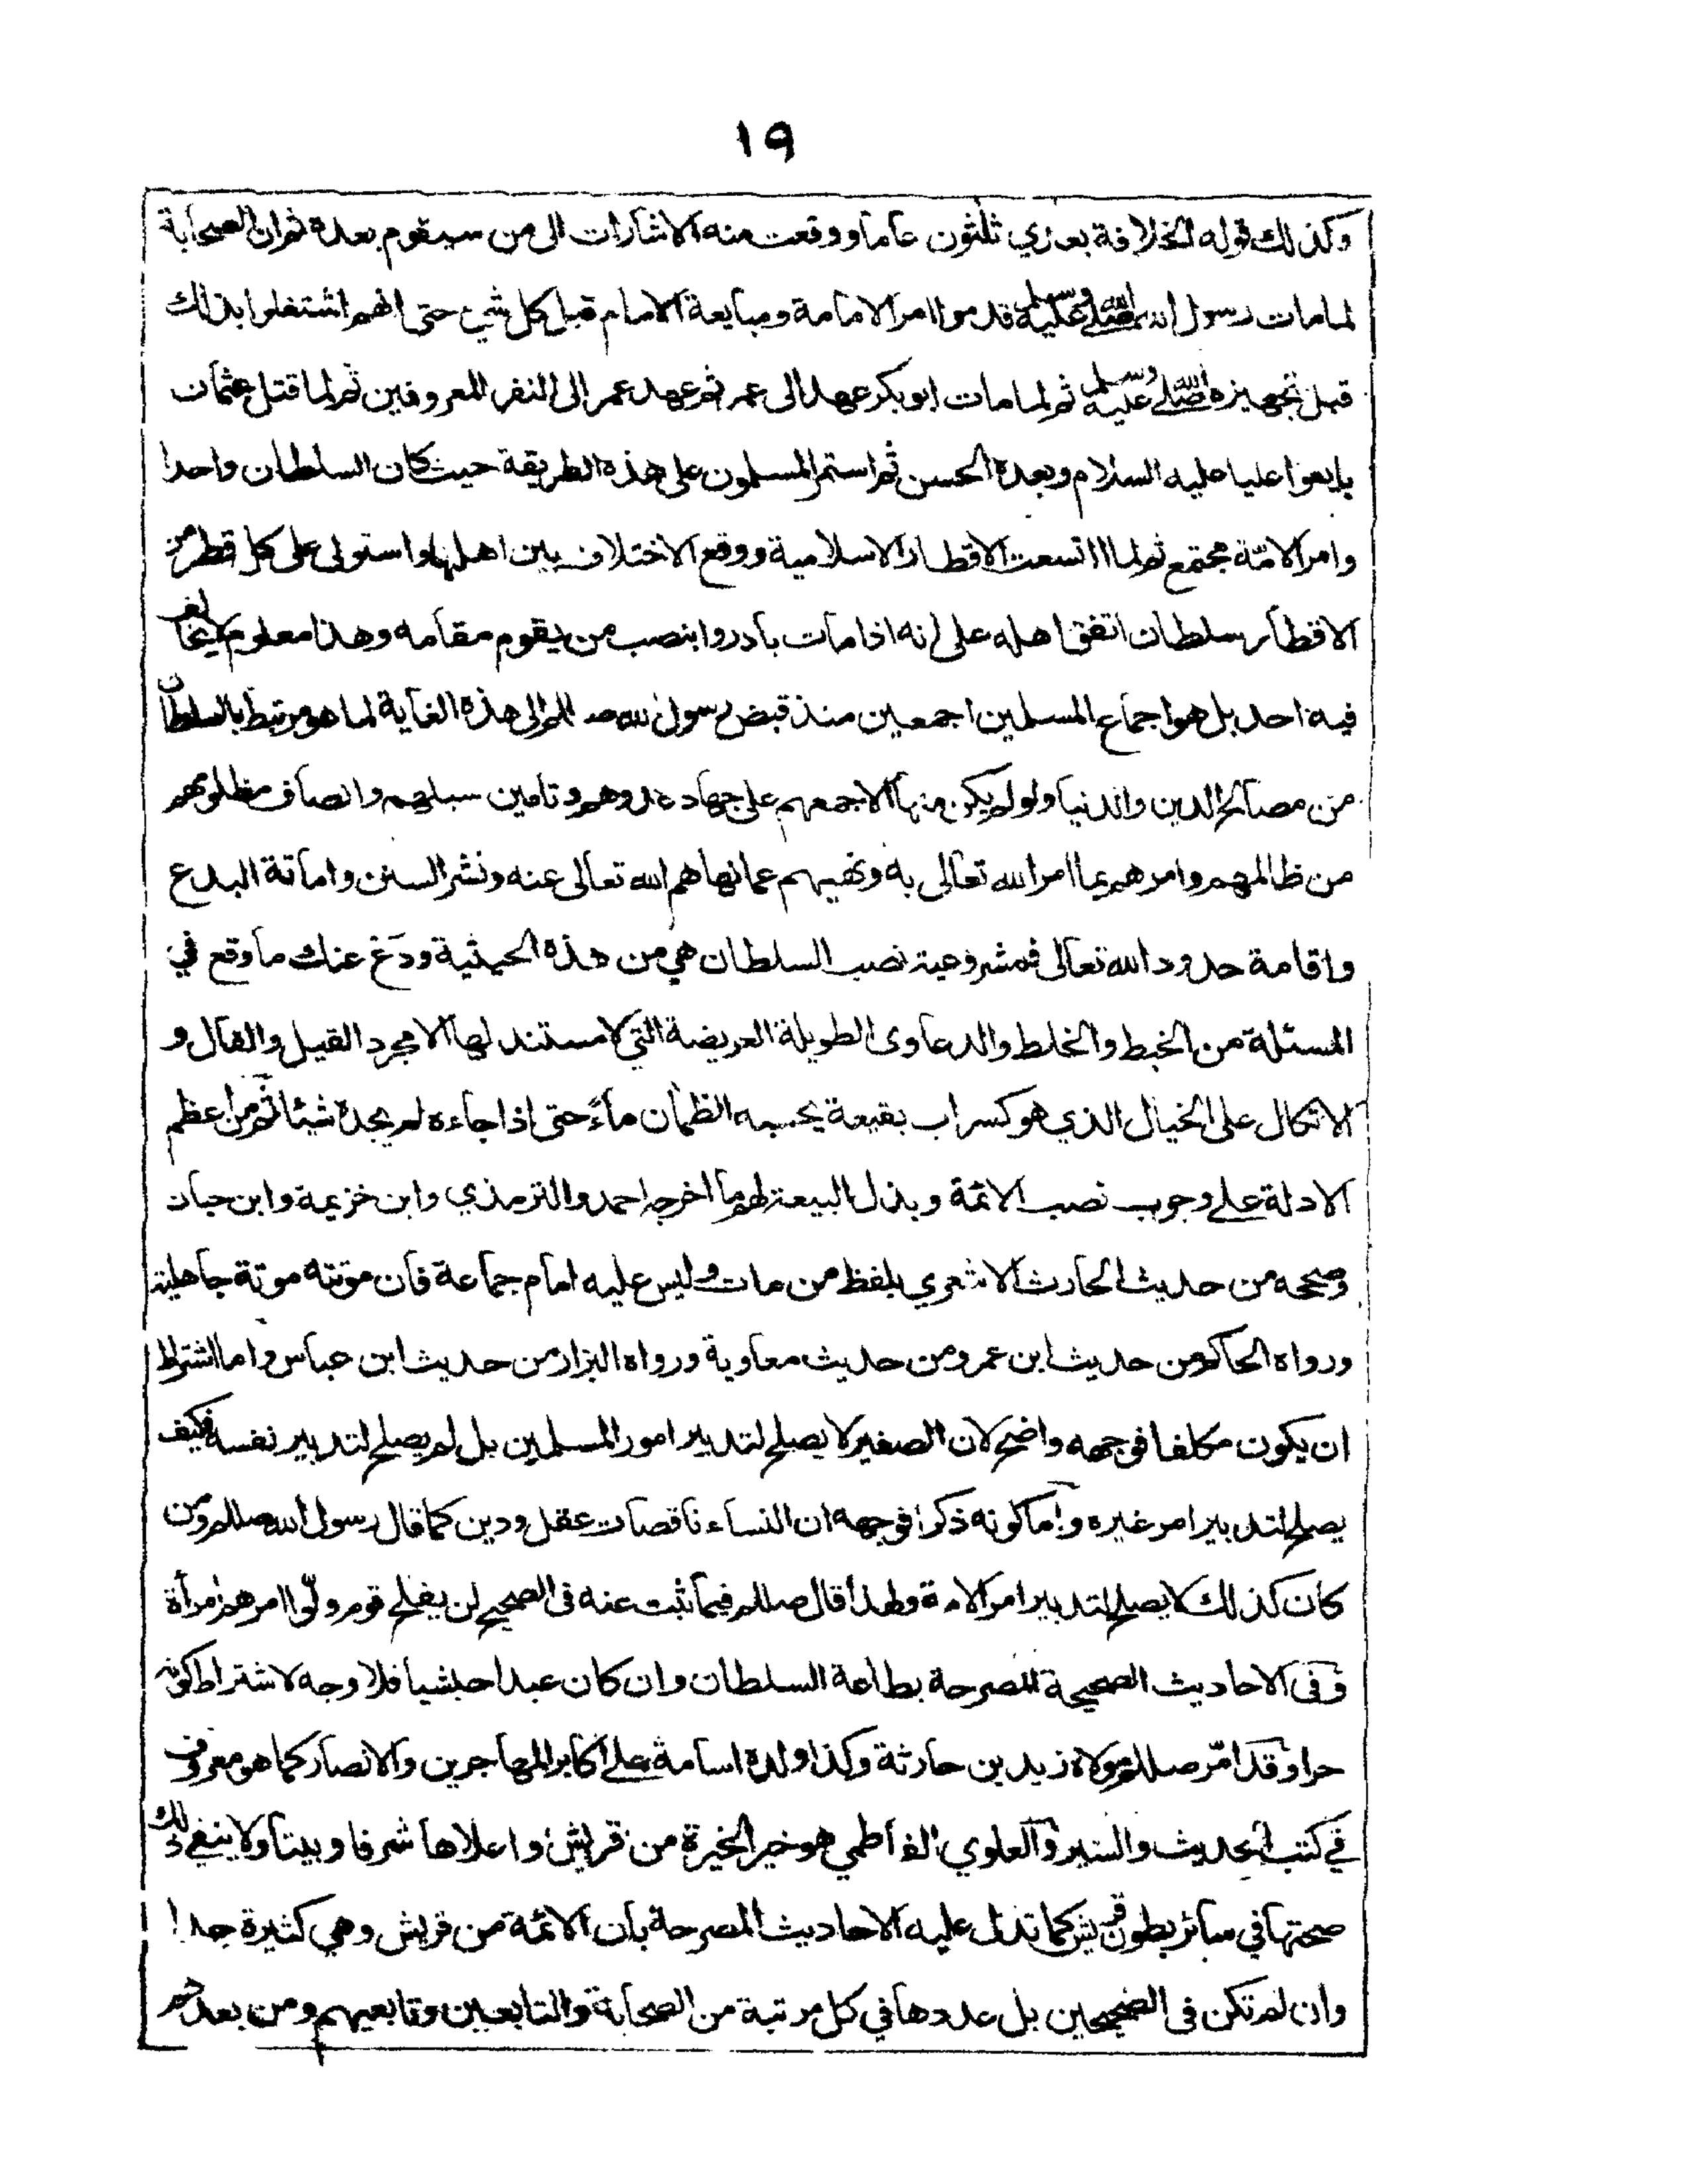 ١٩
وكذلك قوله الخلافة بعدي ثلثون عاما ووقعت منه الاشارات الى من سيقوم بعده ثم ان الصحابة
لما مات رسول الله صلى الله عليه وسلم قدموا امر الامامة ومبايعة الامام قبل كل شيء حتى انهم اشتغلوا بذلك
قبل تجهيزه صلى الله عليه وسلم ثم لما مات ابو بكر عهد الى عمر ثم عهد عمر الى النفر المعروفين ثم لما قتل عثمان
بايعوا عليا عليه السلام وبعده الحسن ثم استمر المسلمون على هذه الطريقة حيث كان السلطان واحدا
وامر الامّة مجتمع ثم لما اتسعت الاقطار الاسلامية ووقع الاختلاف بين اهلها واستولى على كل قطر من
الاقطار سلطان اتفق اهله على انه اذا مات بادروا بنصب من يقوم مقامه وهذا معلوم لا يخالف
فيه احد بل هو اجماع المسلمين اجمعين منذ قبض رسول الله صللم الى هذه الغاية لما هو مرتبط بالسلطان
من مصالح الدين والدنيا ولو لم يكن منها الا جمعهم على جهاد عدوهم وتامين سبلهم وانصاف مظلومهم
من ظالمهم وامرهم بما امر الله تعالى به ونهيهم عما نهاهم الله تعالى عنه ونشر السنن واماتة البدع
واقامة حدود الله تعالى فمشروعية نصب السلطان هي من هذه الحيثية ودع عنك ما وقع في
المسئلة من الخبط والخلط والدعاوى الطويلة العريضة التي لا مستند لها الا مجرد القيل والقال و
الاتكال على الخيال الذي هو كسراب بقيعة يحسبه الظمأن ماءً حتى اذا جاءه لم يجده شيئا ثم من اعظم
الادلة على وجوب نصب الائمة وبذل البيعة لهم ما اخرجه احمد والترمذي وابن خزيمة وابن حبان
وصححه من حديث الحارث الاشعري بلفظ من مات وليس عليه امام جماعة فان موتته موتة جاهلية
ورواه الحاكم من حديث ابن عمر ومن حديث معاوية ورواه البزار من حديث ابن عباس واما اشتراط
ان يكون مكلفا فوجهه واضح لان الصغير لا يصلح لتدبير امور المسلمين بل لم يصلح لتدبير نفسه فكيف
يصلح لتدبير امر غيره واما كونه ذكرا فوجهه ان النساء ناقصات عقل ودين كما قال رسول الله صللم ومن
كان كذلك لا يصلح لتدبير امر الامة ولهذا قال صللم فيما ثبت عنه في الصحيح لن يفلح قوم ولّوا امرهم امرأة
وفي الاحاديث الصحيحة المصرحة بطاعة السلطان وان كان عبدا حبشيا فلا وجه لاشتراط كونه
حرا وقد امّر صللم مولاه زيد بن حارثة وكذا ولده اسامة على اكابر المهاجرين والانصار كما هو معروف
في كتب الحديث والسير والعلوي الفاطمي هو خير الخيرة من قريش واعلاها شرفا وبيتا ولا ينفي ذلك
صحتها في سائر بطون قريش كما تدل عليه الاحاديث المصرحة بان الائمة من قريش وهي كثيرة جدا
وان لم تكن في الصحيحين بل عددها في كل مرتبة من الصحابة والتابعين وتابعيهم ومن بعدهم